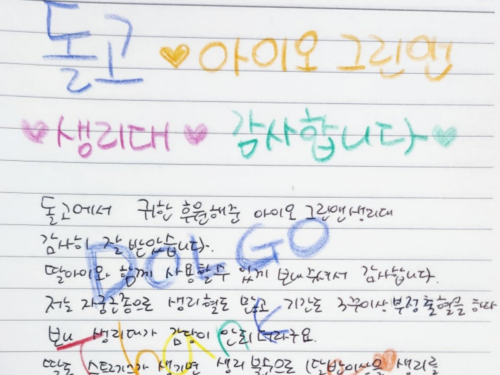 돌고 ♥ 아이오 그린맨
♥ 생리대 ♥ 감사합니다 ♥
돌고에서 귀한 후원해준 아이오 그린맨생리대
감사히 잘 받았습니다.
DOLGO
딸아이와 함께 사용할수 있게 보내주셔서 감사합니다.
저는 자궁근종으로 생리혈도 많고 기간도 3주이상 부정출혈을 하다
보니 생리대가 감당이 안되더라구요.
Thank
딸도 스트레스가 생기면 생리불순으로 생리를